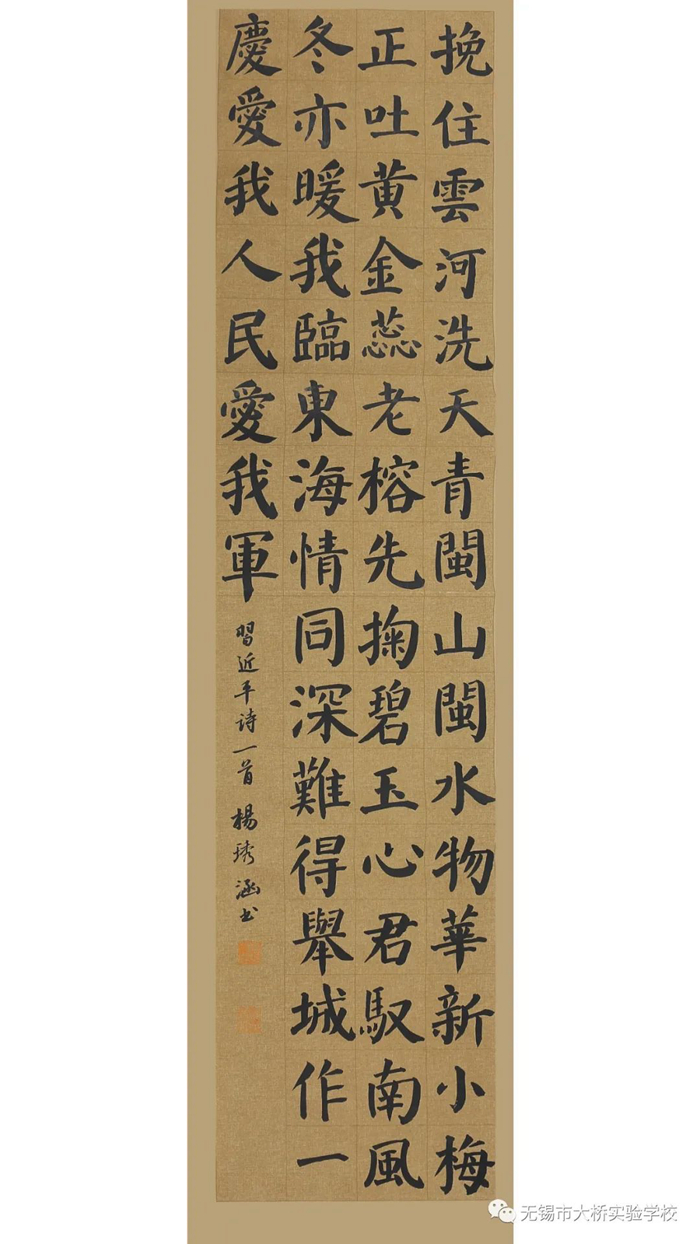 挽住雲河洗天青閩山閩水物華新小梅
正吐黄金蕊老榕先掬碧玉心君馭南風
冬亦暖我臨東海情同深難得舉城作一
慶愛我人民愛我軍
習近平诗一首 楊琇涵书
无锡市大桥实验学校